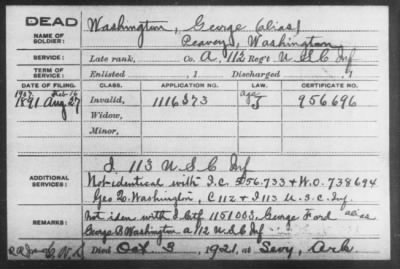 DEAD
NAME OF SOLDIER:
Washington, George (alias)
Peavey, Washington
SERVICE:
Late rank, Co. A, 112 Reg't U S C Inf
TERM OF SERVICE:
Enlisted , 1 Discharged , 1
DATE OF FILING. CLASS. APPLICATION NO. LAW. CERTIFICATE NO.
1907 Feb-16
1891 Aug 27 Invalid, 1116373 age J 956696
Widow,
Minor,
ADDITIONAL SERVICES:
I. 113 U S C Inf
Not identical with I.C. 556.733 & W.O. 738694
Geo Washington, C 112 & I 113 U.S.C. Inf
REMARKS:
Not iden with I Ctf 1151003. George Ford alias
George B Washington a 112 U S C Inf
Died Oct 3, 1921, at Ark.